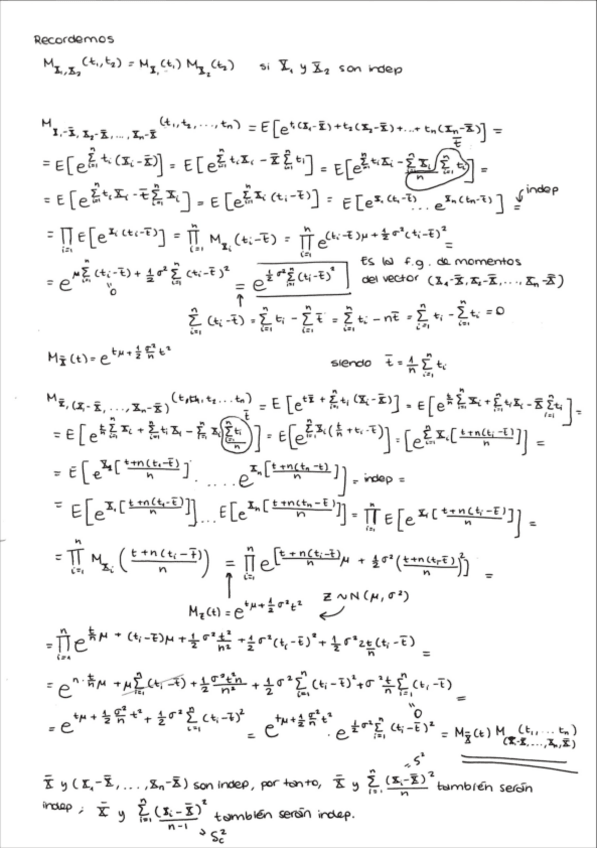 Recordemos
M_{X₁,X₂}(t₁,t₂) = M_{X₁}(t₁) M_{X₂}(t₂) si X₁ y X₂ son indep
M_{X₁-X̄, X₂-X̄, ..., Xₙ-X̄}(t₁, t₂, ..., tₙ) = E[e^{t₁(X₁-X̄)+t₂(X₂-X̄)+...+tₙ(Xₙ-X̄)}] =
= E[e^{Σᵢ₌₁ⁿ tᵢ(Xᵢ-X̄)}] = E[e^{Σᵢ₌₁ⁿ tᵢXᵢ - X̄ Σᵢ₌₁ⁿ tᵢ}] = E[e^{Σᵢ₌₁ⁿ tᵢXᵢ - (Σᵢ₌₁ⁿ Xᵢ / n) Σᵢ₌₁ⁿ tᵢ}] = t̄
= E[e^{Σᵢ₌₁ⁿ tᵢXᵢ - t̄ Σᵢ₌₁ⁿ Xᵢ}] = E[e^{Σᵢ₌₁ⁿ Xᵢ(tᵢ-t̄)}] = E[e^{X₁(t₁-t̄)} ... e^{Xₙ(tₙ-t̄)}] = indep
= ∏ᵢ₌₁ⁿ E[e^{Xᵢ(tᵢ-t̄)}] = ∏ᵢ₌₁ⁿ M_{Xᵢ}(tᵢ-t̄) = ∏ᵢ₌₁ⁿ e^{(tᵢ-t̄)μ + ½σ²(tᵢ-t̄)²} =
= e^{μ Σᵢ₌₁ⁿ(tᵢ-t̄) + ½σ² Σᵢ₌₁ⁿ(tᵢ-t̄)²} = e^{½σ² Σᵢ₌₁ⁿ(tᵢ-t̄)²} Es la f.g. de momentos
"0 ↑ del vector (X₁-X̄, X₂-X̄, ..., Xₙ-X̄)
Σᵢ₌₁ⁿ (tᵢ-t̄) = Σᵢ₌₁ⁿ tᵢ - Σᵢ₌₁ⁿ t̄ = Σᵢ₌₁ⁿ tᵢ - nt̄ = Σᵢ₌₁ⁿ tᵢ - Σᵢ₌₁ⁿ tᵢ = 0
M_{X̄}(t) = e^{tμ + ½ (σ²/n) t²} siendo t̄ = 1/n Σᵢ₌₁ⁿ tᵢ
M_{X̄, (X₁-X̄, ..., Xₙ-X̄)}(t, t₁, t₂ ... tₙ) = E[e^{tX̄ + Σᵢ₌₁ⁿ tᵢ(Xᵢ-X̄)}] = E[e^{(t/n) Σᵢ₌₁ⁿ Xᵢ + Σᵢ₌₁ⁿ tᵢXᵢ - X̄ Σᵢ₌₁ⁿ tᵢ}] =
= E[e^{(t/n) Σᵢ₌₁ⁿ Xᵢ + Σᵢ₌₁ⁿ tᵢXᵢ - Σᵢ₌₁ⁿ Xᵢ (Σᵢ₌₁ⁿ tᵢ / n)}] t̄ = E[e^{Σᵢ₌₁ⁿ Xᵢ(t/n + tᵢ - t̄)}] = [e^{Σᵢ₌₁ⁿ Xᵢ[(t+n(tᵢ-t̄))/n]}] =
= E[e^{X₁[(t+n(t₁-t̄))/n]} ..... e^{Xₙ[(t+n(tₙ-t̄))/n]}] = indep =
= E[e^{X₁[(t+n(t₁-t̄))/n]}] ... E[e^{Xₙ[(t+n(tₙ-t̄))/n]}] = ∏ᵢ₌₁ⁿ E[e^{Xᵢ[(t+n(tᵢ-t̄))/n]}] =
= ∏ᵢ₌₁ⁿ M_{Xᵢ}((t+n(tᵢ-t̄))/n) = ∏ᵢ₌₁ⁿ e^{[(t+n(tᵢ-t̄))/n μ + ½σ²((t+n(tᵢ-t̄))/n)²]} =
M_Z(t) = e^{tμ+½σ²t²} Z ~ N(μ, σ²)
= ∏ᵢ₌₁ⁿ e^{(t/n)μ + (tᵢ-t̄)μ + ½σ² t²/n² + ½σ²(tᵢ-t̄)² + ½σ² 2(t/n)(tᵢ-t̄)} =
= e^{n·(t/n)μ + μ Σᵢ₌₁ⁿ(tᵢ-t̄) + ½ σ²t²n/n² + ½σ² Σᵢ₌₁ⁿ(tᵢ-t̄)² + σ² (t/n) Σᵢ₌₁ⁿ(tᵢ-t̄)} =
"0
= e^{tμ + ½ (σ²/n) t² + ½σ² Σᵢ₌₁ⁿ(tᵢ-t̄)²} = e^{tμ + ½ (σ²/n) t²} · e^{½σ² Σᵢ₌₁ⁿ(tᵢ-t̄)²} = M_{X̄}(t) M_{(X₁-X̄, ..., Xₙ-X̄)}(t₁, ... tₙ)
X̄ y (X₁-X̄, ..., Xₙ-X̄) son indep, por tanto, X̄ y Σᵢ₌₁ⁿ (Xᵢ-X̄)²/n → S² también serán
indep, X̄ y Σᵢ₌₁ⁿ (Xᵢ-X̄)²/(n-1) también serán indep.
→ S_c²